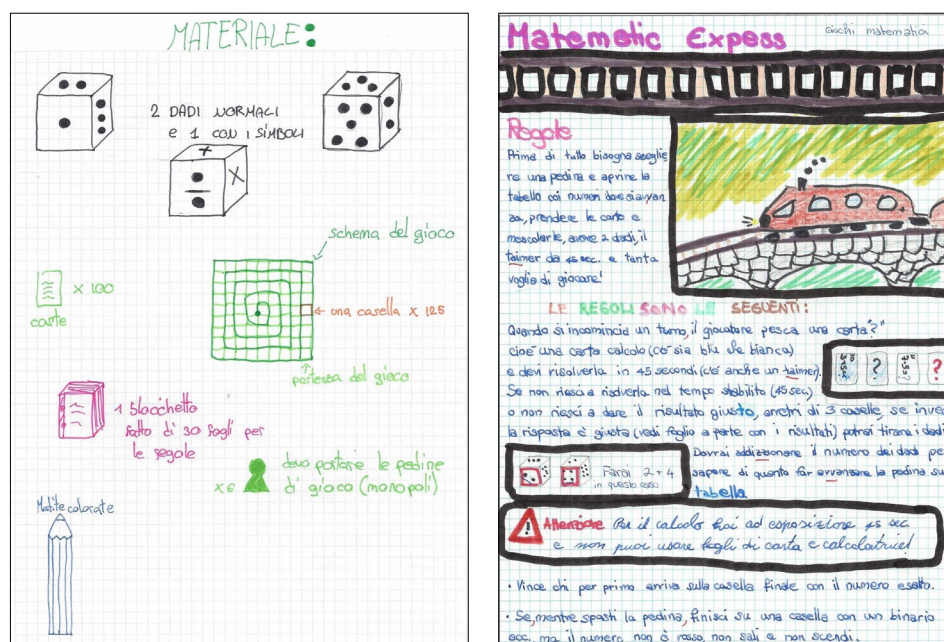 MATERIALE:
2 DADI NORMALI
e 1 CON I SIMBOLI
schema del gioco
x 100
carte
← una casella x 125
partenza del gioco
1 blocchetto
fatto di 30 fogli per
le regole
devo portare le pedine
x6 di gioco (monopoli)
Matite colorate
Matematic Expess
Giochi matematici
Regole
Prima di tutto bisogna sceglie
re una pedina e aprire la
tabello coi numeri dove si avvan
za, prendere le carte e
mescolarle, avere 2 dadi, il
taimer da 45 sec. e tanta
voglia di giocare!
LE REGOLE SONO LE SEGUENTI:
Quando si incomincia un turno, il giocatore pesca una carta "?"
cioè una carta calcolo (c'è sia blu che bianca)
e devi risolverla in 45 secondi (c'è anche un taimer).
? ?
Se non riesci a risolverla nel tempo stabilito (45 sec)
o non riesci a dare il risultato giusto, arretri di 3 caselle, se inve
la risposta è giusta (vedi foglio a parte con i risultati) potrai tirare i dadi
Dovrai addizionare il numero dei dadi pe
sapere di quanto far avvanzare la pedina su
tabella
Farai 2+4
in questo caso
! Attenzione Per il calcolo hai ad esposizione 45 sec.
e non puoi usare fogli di carta e calcolatrice!
• Vince chi per primo arriva sulla casella finale con il numero esatto.
• Se, mentre sposti la pedina, finisci su una casella con un binario
ecc. ma il numero non è rosso, non sali e non scendi.